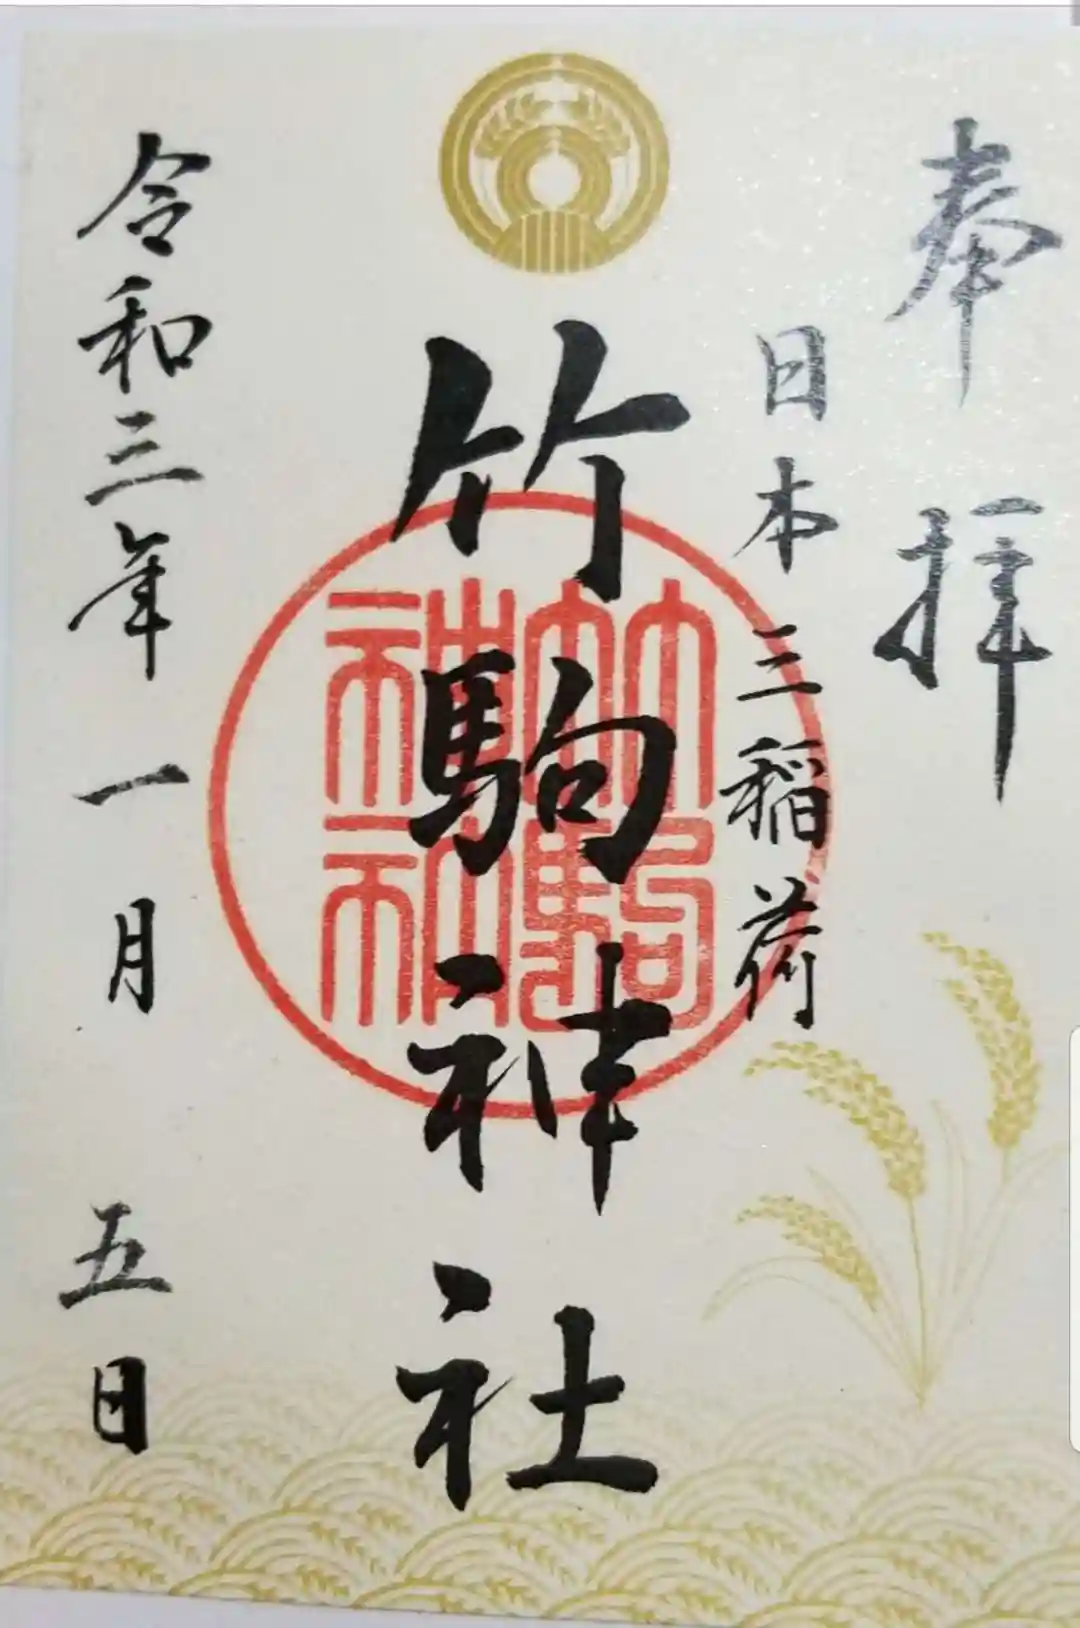 奉拝
日本三稲荷
竹駒神社
竹駒神社
令和三年一月五日